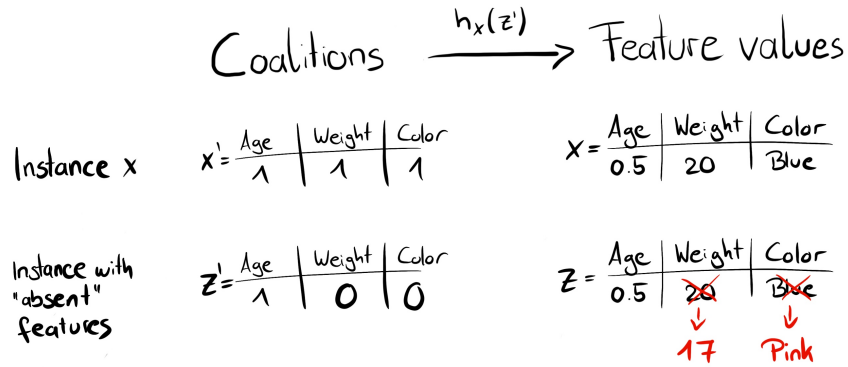 Coalitions hx(z') Feature values
Instance x x'= Age Weight Color x= Age Weight Color
1 1 1 0.5 20 Blue
Instance with "absent" features z'= Age Weight Color z= Age Weight Color
1 0 0 0.5 20 Blue
17 Pink